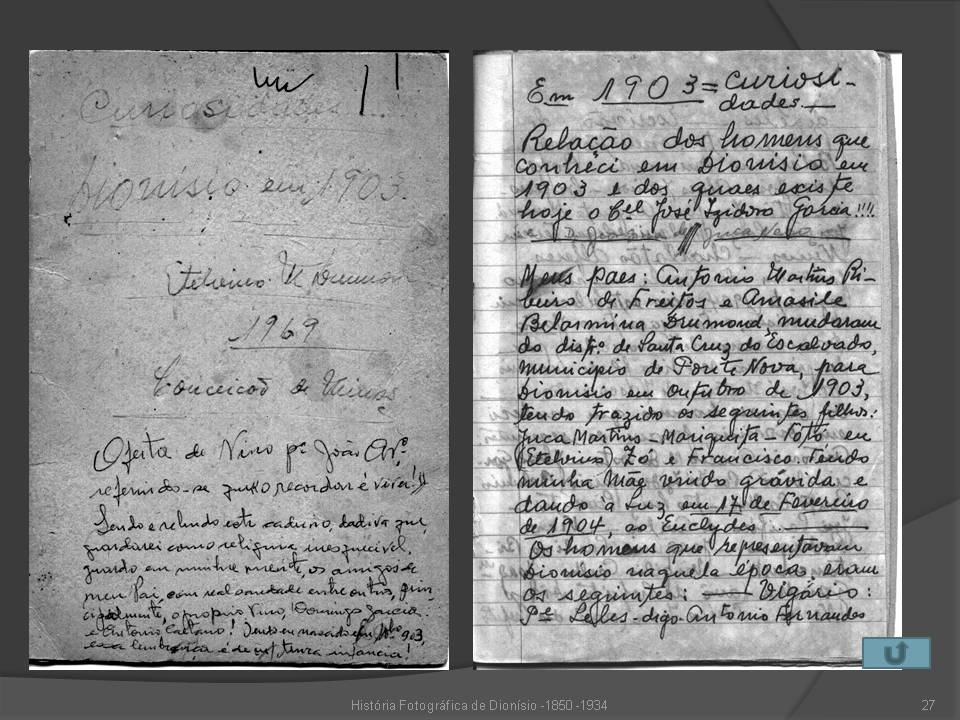 Curiosidades
Dionisio em 1903.
Etelvino M Drumon
1969
Conceicão de Minas
Oferta de Nino pª João
referindo-se q recordar é viver!
Lendo e relendo este caderno, dadiva que
guardarei como reliquia inesquecivel,
guardo em minha mente, os amigos de
meu Pai, com real saudade entre outros, prin
cipalmente, o proprio Nino, Domingo Garcia
e Antonio Caetano! Tendo eu nascido em 903,
essa lembrança é de infancia!
Em 1903 = curiosi-
dades —
Relação dos homens que
conheci em Dionisio em
1903 e dos quaes existe
hoje o Cel José Izidoro Garcia!!!!
Meus paes: Antonio Martins Ri-
beiro de Freitos e Amasile
Belarmina Drumond, mudaram
do distrº. de Santa Cruz do Escalvado,
municipio de Ponte Nova, para
Dionisio em outubro de 1903,
tendo trazido os seguintes filhos:
Juca Martins - Mariquita - Totó eu
(Etelvino) Zó e Francisco. Tendo
minha Mãe vindo grávida e
dando à luz em 17 de Fevereiro
de 1904, ao Euclydes
Os homens que representavam
Dionisio naquela época, eram
os seguintes: — Vigário:
Pe Leles - digo - Antonio Fernandes
História Fotográfica de Dionísio -1850 -1934
27